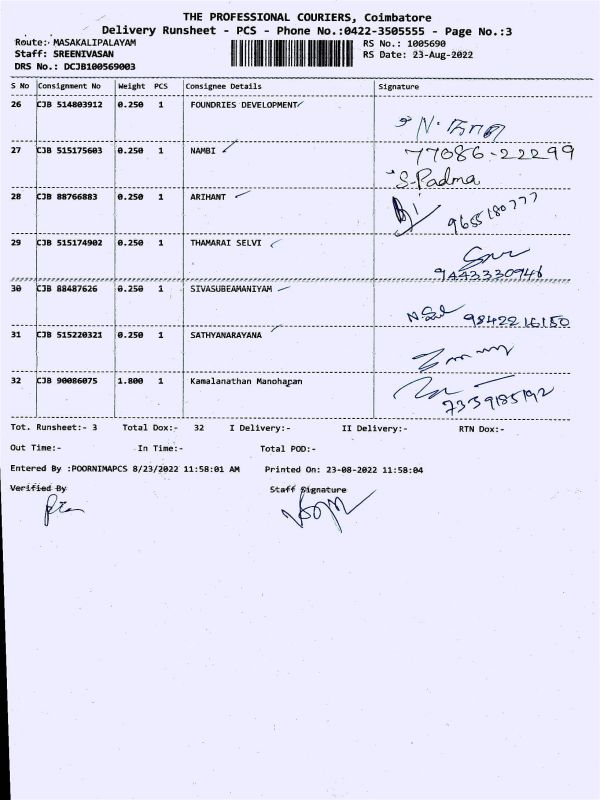 THE PROFESSIONAL COURIERS, Coimbatore
Delivery Runsheet - PCS - Phone No.:0422-3505555 - Page No.:3
Route:- MASAKALIPALAYAM RS No.: 1005690
Staff: SREENIVASAN RS Date: 23-Aug-2022
DRS No.: DCJB100569003
S No Consignment No Weight PCS Consignee Details Signature
26 CJB 514803912 0.250 1 FOUNDRIES DEVELOPMENT
27 CJB 515175603 0.250 1 NAMBI 77086-22299
S-Padma
28 CJB 88766883 0.250 1 ARIHANT 9655180777
29 CJB 515174902 0.250 1 THAMARAI SELVI
9443330946
30 CJB 88487626 0.250 1 SIVASUBEAMANIYAM
9842216150
31 CJB 515220321 0.250 1 SATHYANARAYANA
32 CJB 90086075 1.800 1 Kamalanathan Manohagan
7339185192
Tot. Runsheet:- 3 Total Dox:- 32 I Delivery:- II Delivery:- RTN Dox:-
Out Time:- In Time:- Total POD:-
Entered By :POORNIMAPCS 8/23/2022 11:58:01 AM Printed On: 23-08-2022 11:58:04
Verified By Staff Signature